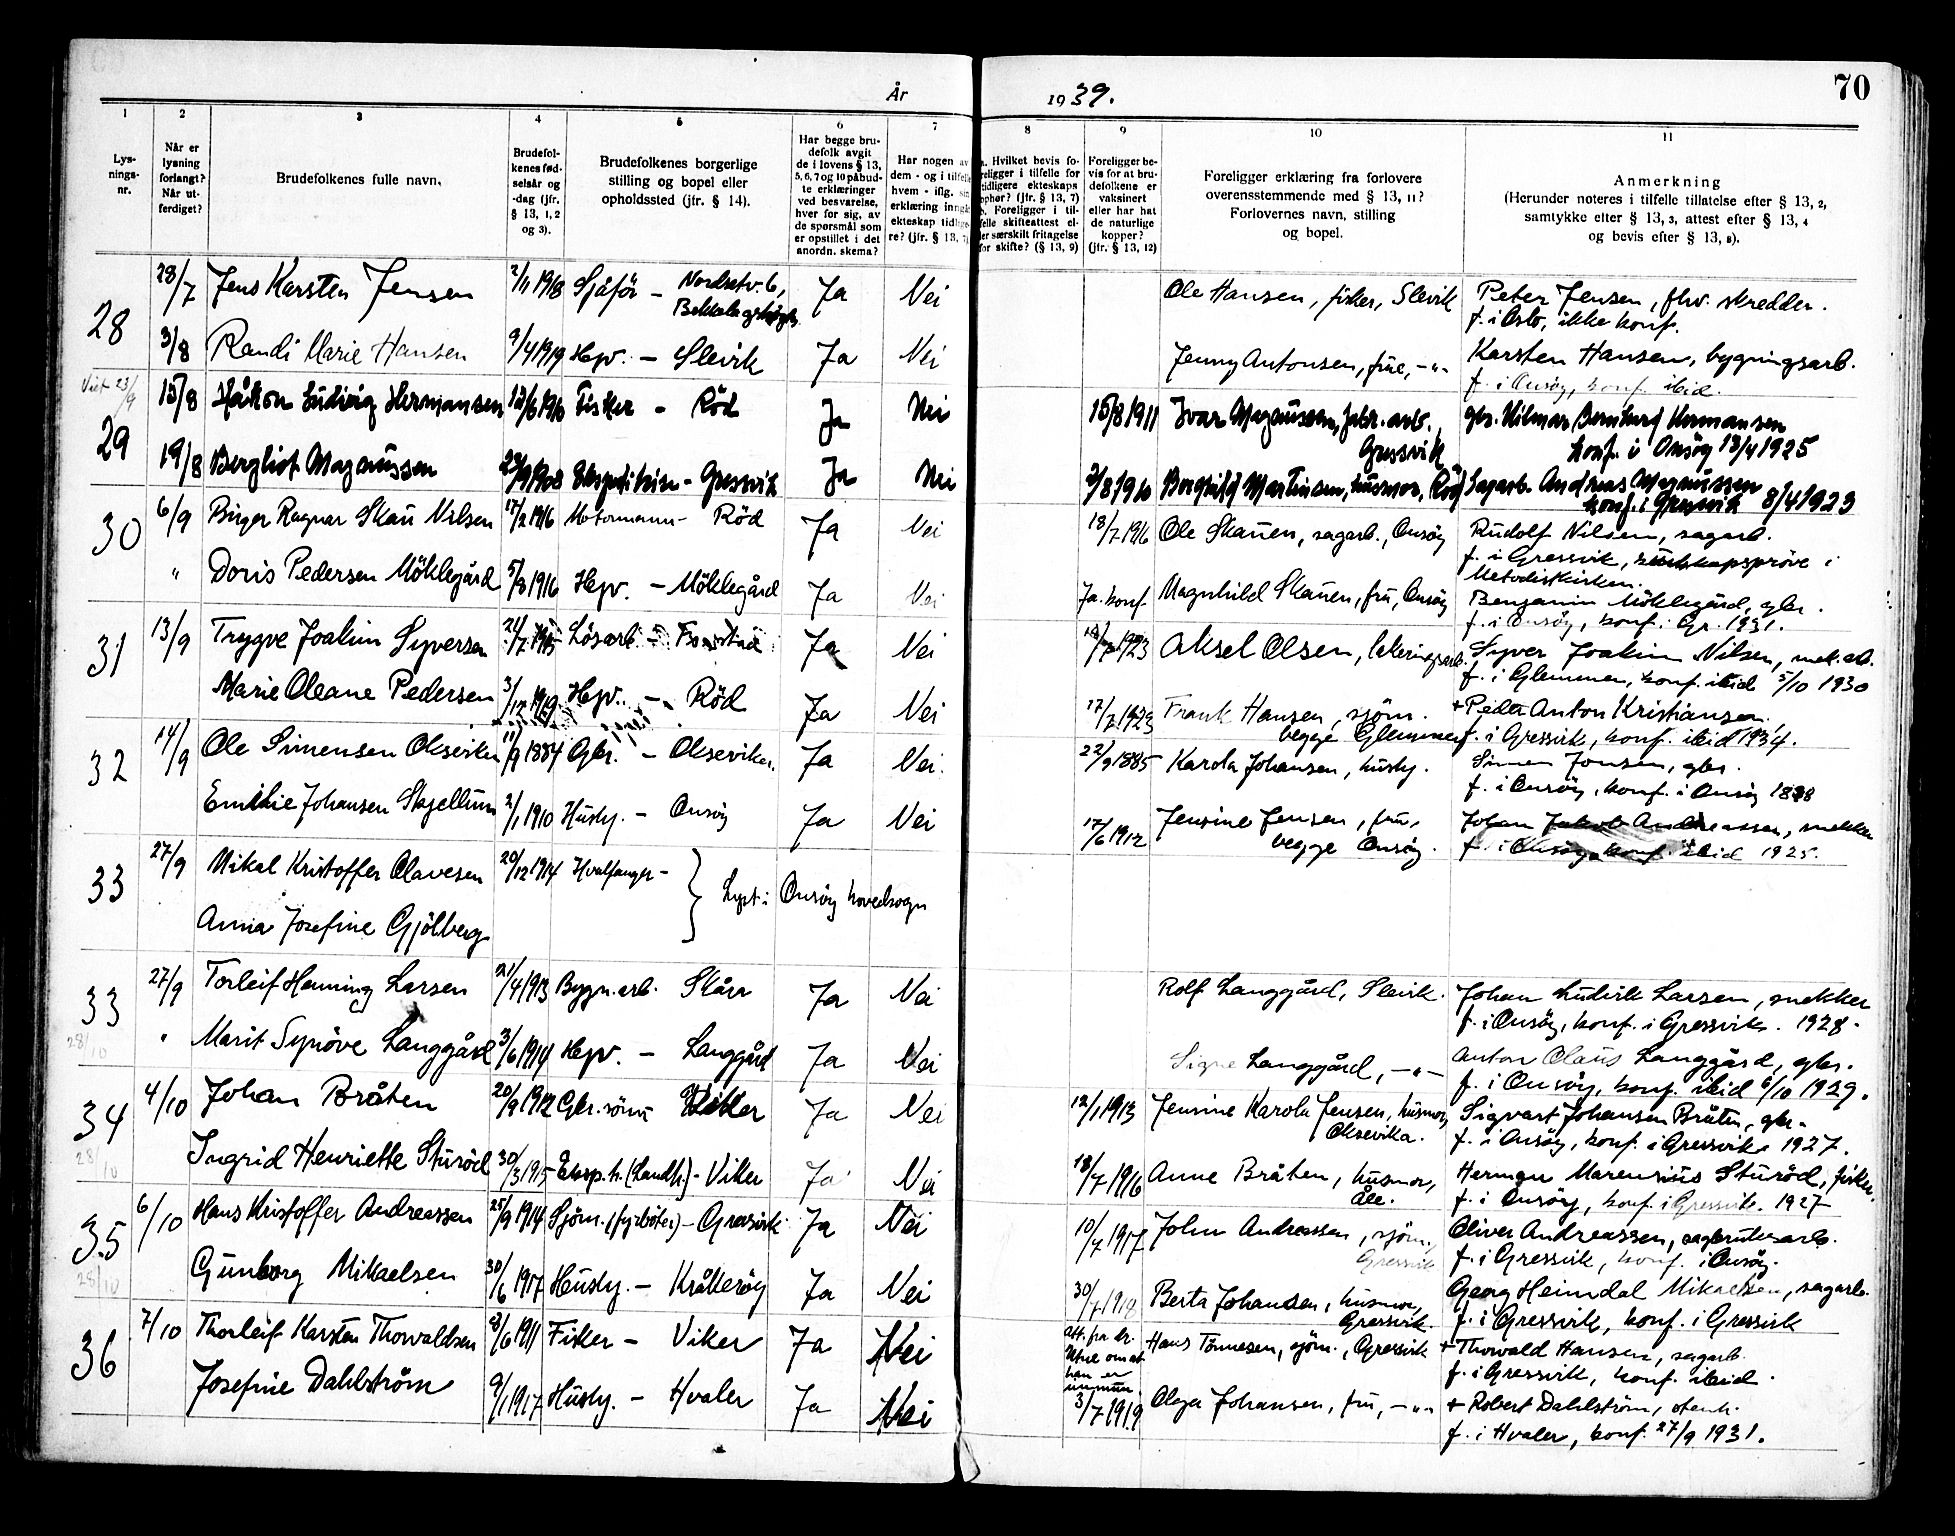 År 1939.
70
1 2 3 4 5 6 7 8 9 10 11
Lys-
nings-
nr.
Når er
lysning
forlangt?
Når ut-
ferdiget?
Brudefolkenes fulle navn.
Brudefol-
kenes fød-
selsår og
-dag (jfr.
§ 13, 1, 2
og 3).
Brudefolkenes borgerlige
stilling og bopel eller
opholdssted (jfr. § 14).
Har begge bru-
defolk avgit
de i lovens § 13,
5, 6, 7 og 10 påbud-
te erklæringer
ved besvarelse,
hver for sig, av
de spørsmål som
er opstillet i det
anordn. skema?
Har nogen av
dem - og i tilfelle
hvem - iflg. sin
erklæring inngå
ekteskap tidlige-
re? (jfr. § 13, 7)
a. Hvilket bevis fo-
religger i tilfelle for
tidligere ekteskaps
ophør? (jfr. § 13, 7)
b. Foreligger i til-
felle skifteattest el-
ler særskilt fritagelse
for skifte? (§ 13, 9)
Foreligger be-
vis for at bru-
defolkene er
vaksinert
eller har hat
de naturlige
kopper?
(jfr. § 13, 12)
Foreligger erklæring fra forlovere
overensstemmende med § 13, 11?
Forlovernes navn, stilling
og bopel.
Anmerkning
(Herunder noteres i tilfelle tillatelse efter § 13, 2,
samtykke efter § 13, 3, attest efter § 13, 4
og bevis efter § 13, 8).
28 28/7 Jens Karsten Jensen 2/11 1918 Sjåför - Nordsetv. 6, Ja Nei Ole Hansen, fisker, Slevik Peter Jensen, fhv. skredder.
f. i Oslo, ikke konf.
3/8 Randi Marie Hansen 9/4 1919 Hjv. - Slevik Ja Nei Jenny Antonsen, frue, -"- Karsten Hansen, bygningsarb.
f. i Onsöy, konf. ibid.
Viet 23/9
29 15/8 Håkon Ludvig Hermansen Fisker - Röd Ja Nei 15/8 1911 Ivar Magnussen, fabr. arb. gbr. Hilmar Bernhard Hermansen
Gressvik konf. i Onsöy 13/4 1925
19/8 Bergliot Magnussen 23/9 1908 Ekspeditrise - Gressvik Ja Nei 2/8 1910 Borghild Martinsen, husmor, Röd Sagarb. Andreas Magnussen
konf. i Gressvik 8/4 1923
30 6/9 Birger Ragnar Skau Nilsen 17/2 1916 Motormann - Röd Ja Nei 18/7 1916 Ole Skauen, sagarb., Onsöy Rudolf Nilsen, sagarb.
f. i Gressvik, kunskapspröve i
Metodistkirken.
" Doris Pedersen Möklegård 5/8 1916 Hjv. - Möklegård Ja Nei Ja. konf. Magnhild Skauen, fru, Onsöy Benjamin Möklegård, gbr.
f. i Onsöy, konf. i Gr. 1931.
31 13/9 Trygve Joakim Syversen Lösarb. - Fredrikstad Ja Nei Aksel Olsen, lakeringsarb. Syver Joakim Nilsen, mek. arb.
f. i Glemmen, konf. ibid 5/10 1930
Marie Oleane Pedersen 3/12 1919 Hjv. - Röd Ja Nei 17/7 1923 Frank Hansen, sjöm. + Peder Anton Kristiansen.
begge Glemmen f. i Gressvik, konf. ibid 1934.
32 14/9 Ole Simensen Oksviken 11/9 1884 Gbr. - Okseviken. Ja Nei. 22/9 1885 Karola Johansen, husby. Simen Jonsen, gbr.
f. i Onsöy, konf. i Onsöy 1898
Emilie Johansen Skjellum 2/1 1910 Husby. - Onsöy Ja Nei 17/6 1912 Jensine Jensen, fru, Johan Jakob Andreassen, snekker
begge Onsöy. f. i Onsöy, konf. ibid 1925.
33 27/9 Mikal Kristoffer Olavesen 20/12 1914 Hvalfanger -
} Lyst i Onsöy hovedsogn
Anna Josefine Gjölberg
33 27/9 Torleif Henning Larsen 21/4 1913 Bygn. arb. Skårr Ja Nei Rolf Langgård, Slevik. Johan Ludvik Larsen, snekker
f. i Onsöy, konf. i Gressvik. 1928.
28/10 " Marit Synöve Langgård 3/6 1914 Hjv. - Langgård Ja Nei Signe Langgård, -"- Anton Claus Langgård, gbr.
f. i Onsöy, konf. ibid 6/10 1929.
34 4/10 Johan Bråten 20/9 1912 Gbr. sönn Viker Ja Nei 12/1 1913 Jensine Karola Jensen, husmor, Sigvart Johansen Bråten, gbr.
Oksevika. f. i Onsöy, konf. i Gressvik 1927.
28/10 Ingrid Henriette Sturöd 30/3 1915 Eksp. h. (Landh.) - Viker Ja Nei 18/7 1916 Anne Bråten, husmor, Herman Marensius Sturöd, fisker.
Åle. f. i Onsöy, konf. i Gressvik. 1927
35 6/10 Hans Kristoffer Andreassen 25/9 1914 Sjöm. (fyrböter) - Gressvik Ja Nei 10/7 1917 John Andreassen, sjöm., Oliver Andreassen, sagbruksarb.
Gressvik f. i Gressvik, konf. i Onsöy.
28/10 Gunborg Mikaelsen 30/6 1917 Husby. - Kråkeröy Ja Nei 30/7 1919 Berta Johansen, husmor, Georg Heimdal Mikaelsen, sagarb.
Gressvik. f. i Gressvik, konf. i Gressvik
36 7/10 Thorleif Karsten Thorvaldsen 8/6 1911 Fisker - Viker Ja Nei Att. fra dr. Utne om at han er immun. Hans Tönnesen, sjöm., Gressvik + Thorvald Hansen, sagarb.
f. i Gressvik, konf. ibid.
Josefine Dahlström 9/1 1917 Husby. - Hvaler Ja Nei 3/7 1919 Olga Johansen, fru, -"- + Robert Dahlström, stenh.
f. i Hvaler, konf. 27/9 1931.